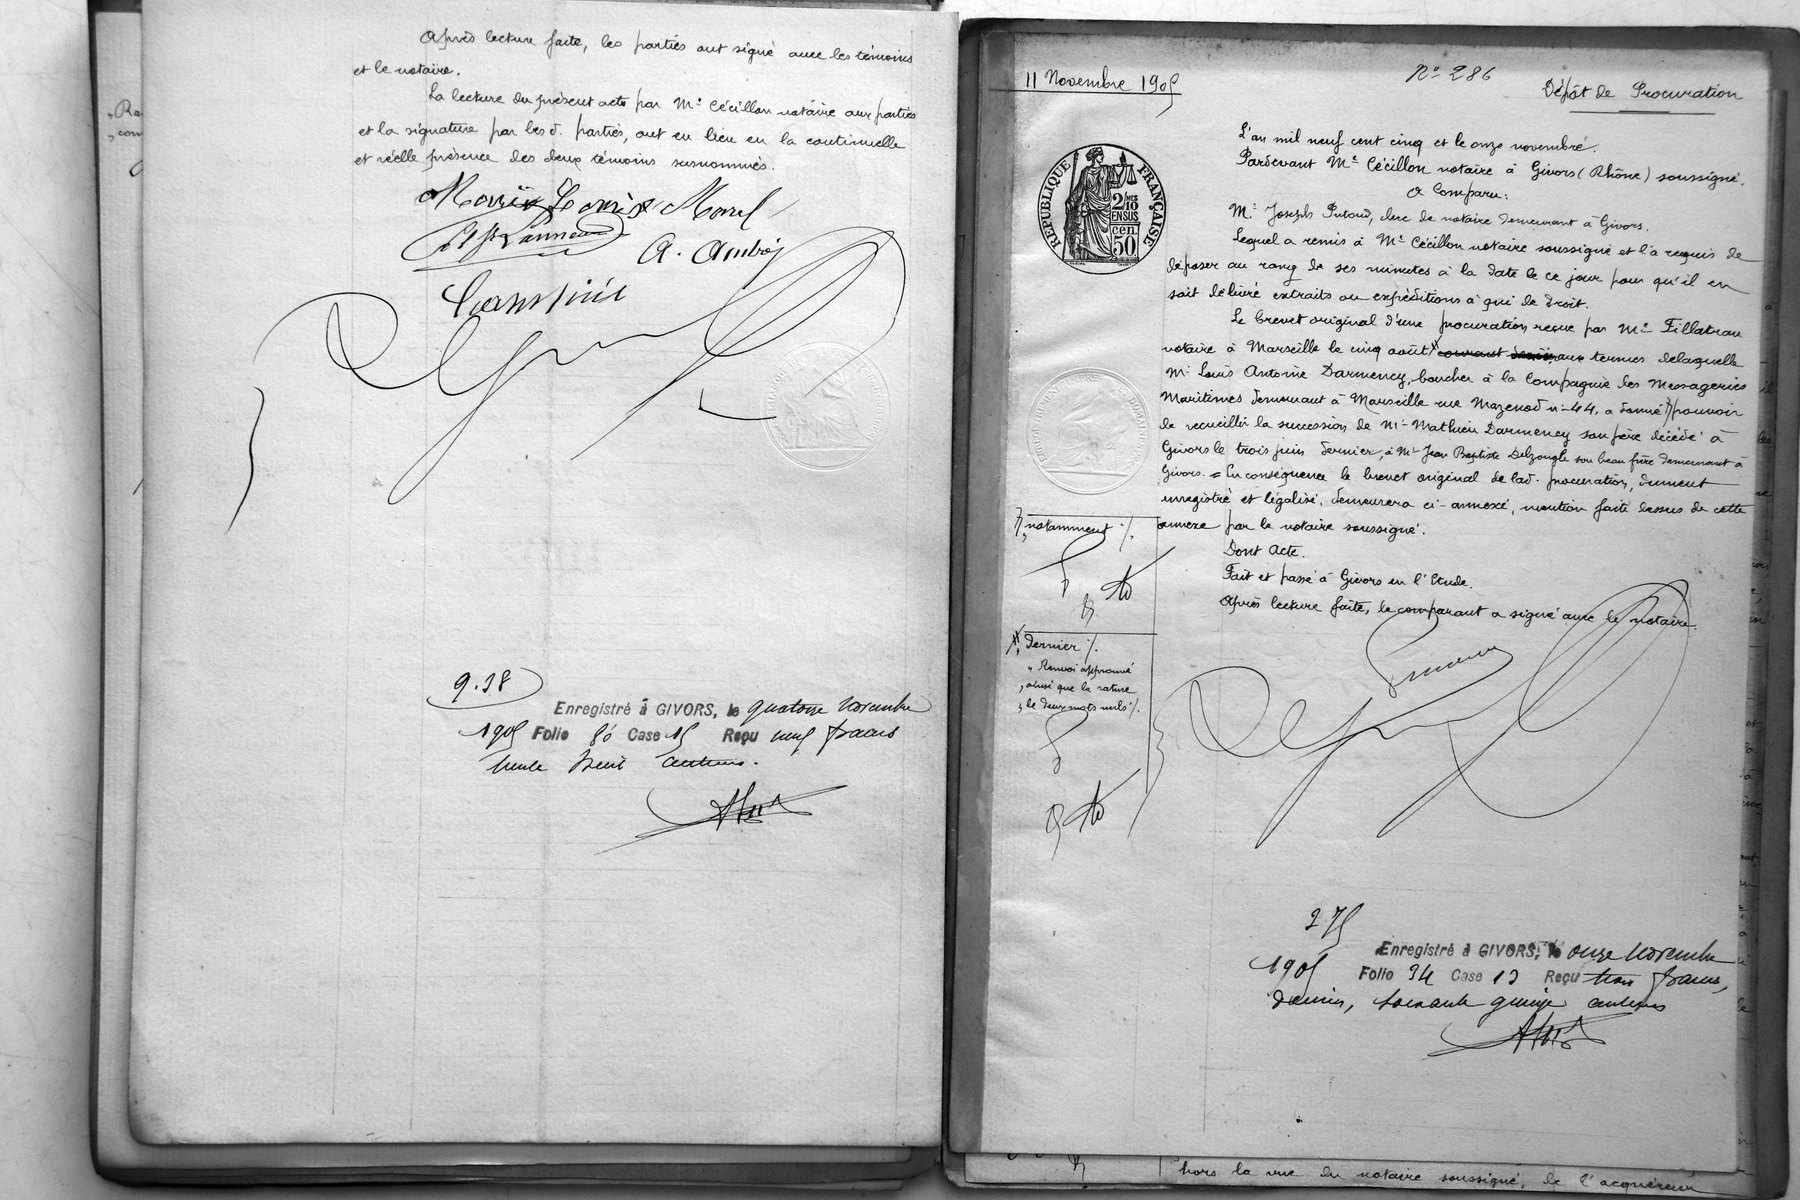 Après lecture faite, les parties ont signé avec les témoins
et le notaire.
La lecture du présent acte par Me Cécillon notaire aux parties
et la signature par les d. parties, ont eu lieu en la continuelle
et réelle présence des deux témoins susnommés.
Morel
A. André
9.38
Enregistré à GIVORS, le quatorze novembre
1905 Folio 80 Case 15 Reçu neuf francs
trente huit centimes.
11 Novembre 1905
No 286
Dépôt de Procuration
RÉPUBLIQUE FRANÇAISE
2/10 MES
EN SUS
50 cen.
L'an mil neuf cent cinq et le onze novembre.
Pardevant Me Cécillon notaire à Givors (Rhône) soussigné.
A Comparu:
Mr Joseph Putoud, clerc de notaire demeurant à Givors.
Lequel a remis à Me Cécillon notaire soussigné et l'a requis de
déposer au rang de ses minutes à la date de ce jour pour qu'il en
soit délivré extraits ou expéditions à qui de droit.
Le brevet original d'une procuration reçue par Me Fillatrau
notaire à Marseille le cinq août courant aux termes delaquelle
Mr Louis Antoine Darmency, boucher à la Compagnie des Messageries
Maritimes demeurant à Marseille rue Mazenod no 44, a donné pouvoir
de recueillir la succession de Mr Mathieu Darmency son père décédé à
Givors le trois juin dernier, à Mr Jean Baptiste Delzongle son beau frère demeurant à
Givors. = En conséquence le brevet original de lad. procuration, dument
enregistré et légalisé, demeurera ci-annexé, mention faite dessus de cette
annexe par le notaire soussigné.
Dont Acte.
Fait et passé à Givors en l'Etude.
Après lecture faite, le comparant a signé avec le notaire.
notamment
dernier
Renvoi approuvé
ainsi que la rature
de deux mots nuls
2 75
Enregistré à GIVORS, le onze novembre
1905 Folio 94 Case 13 Reçu trois francs,
décimes, soixante quinze centimes
hors la vue du notaire soussigné, de l'acquéreur